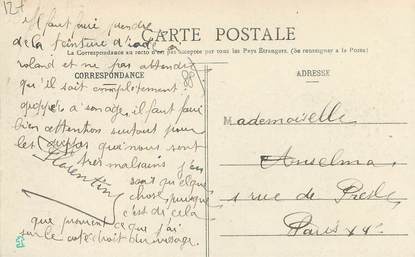 il faut faire prendre
CARTE POSTALE
de la teinture d'iode a
La Correspondance au recto n'est pas acceptée par tous les Pays Étrangers. (Se renseigner à la Poste)
roland et ne pas attendre
CORRESPONDANCE
qu'il soit complètement
à son age, il faut faire
bien attention surtout pour
les que nous sont
très malsains j'en
sais quelque
chose, puisque
c'est de cela
que provient ce que j'ai
sur le coté droit du visage.
Florentin
ADRESSE
Mademoiselle
Anselma
1 rue de Presle
Paris XV